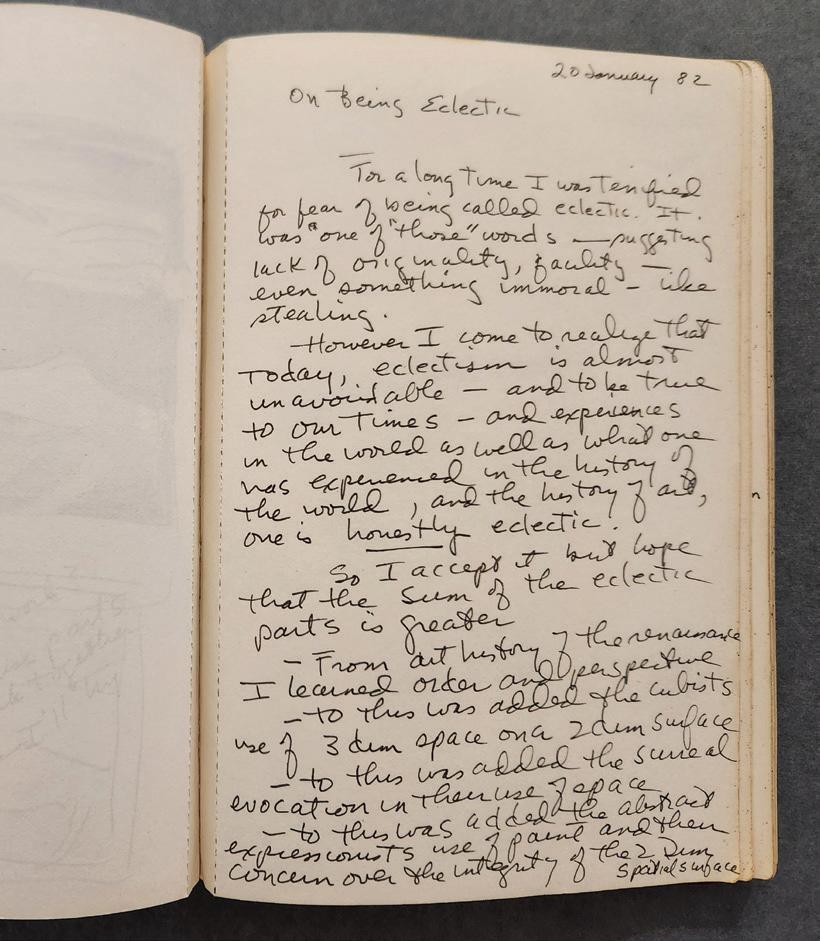 20 January 82
On Being Eclectic
For a long time I was terrified
for fear of being called eclectic. It
was "one of "those" words — suggesting
lack of originality, facility —
even something immoral — like
stealing.
— However I come to realize that
Today, eclectism is almost
unavoidable — and to be true
to our times — and experiences
in the world as well as what one
has experienced in the history of
the world, and the history of art,
one is honestly eclectic.
So I accept it but hope
that the sum of the eclectic
parts is greater
- From art history of the renaissance
I learned order and perspective
- to this was added the cubists
use of 3 dim space on a 2 dim surface
- to this was added the surreal
evocation in their use of space
- to this was added the abstract
expressionists use of paint and their
concern over the integrity of the 2 dim
spatial surface